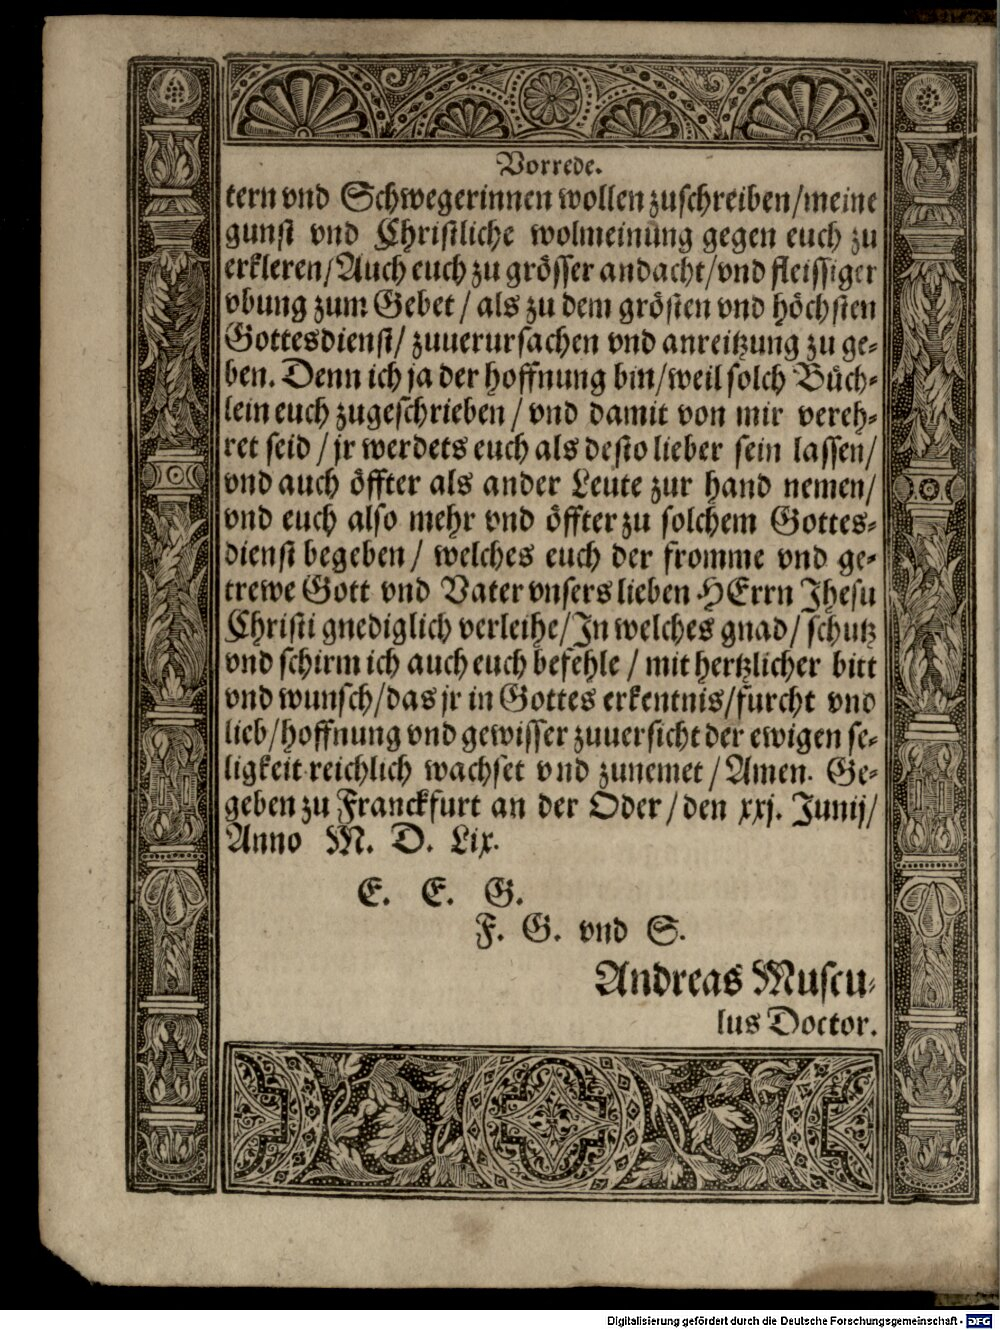 Vorrede.
tern vnd Schwegerinnen wollen zuschreiben/meine
gunst vnd Christliche wolmeinung gegen euch zu
erkleren/Auch euch zu grösser andacht/vnd fleissiger
vbung zum Gebet / als zu dem grösten vnd höchsten
Gottesdienst/ zuuerursachen vnd anreitzung zu ge-
ben. Denn ich ja der hoffnung bin/weil solch Büch-
lein euch zugeschrieben / vnd damit von mir vereh-
ret seid / jr werdets euch als desto lieber sein lassen/
vnd auch öffter als ander Leute zur hand nemen/
vnd euch also mehr vnd öffter zu solchem Gottes-
dienst begeben / welches euch der fromme vnd ge-
trewe Gott vnd Vater vnsers lieben HErrn Jhesu
Christi gnediglich verleihe/Jn welches gnad/ schutz
vnd schirm ich auch euch befehle / mit hertzlicher bitt
vnd wunsch/das jr in Gottes erkentnis/furcht vnd
lieb/hoffnung vnd gewisser zuuersicht der ewigen se-
ligkeit reichlich wachset vnd zunemet / Amen. Ge-
geben zu Franckfurt an der Oder / den xxj. Junij/
Anno M. D. Lix.
E. E. G.
F. G. vnd S.
Andreas Muscu-
lus Doctor.
Digitalisierung gefördert durch die Deutsche Forschungsgemeinschaft - DFG